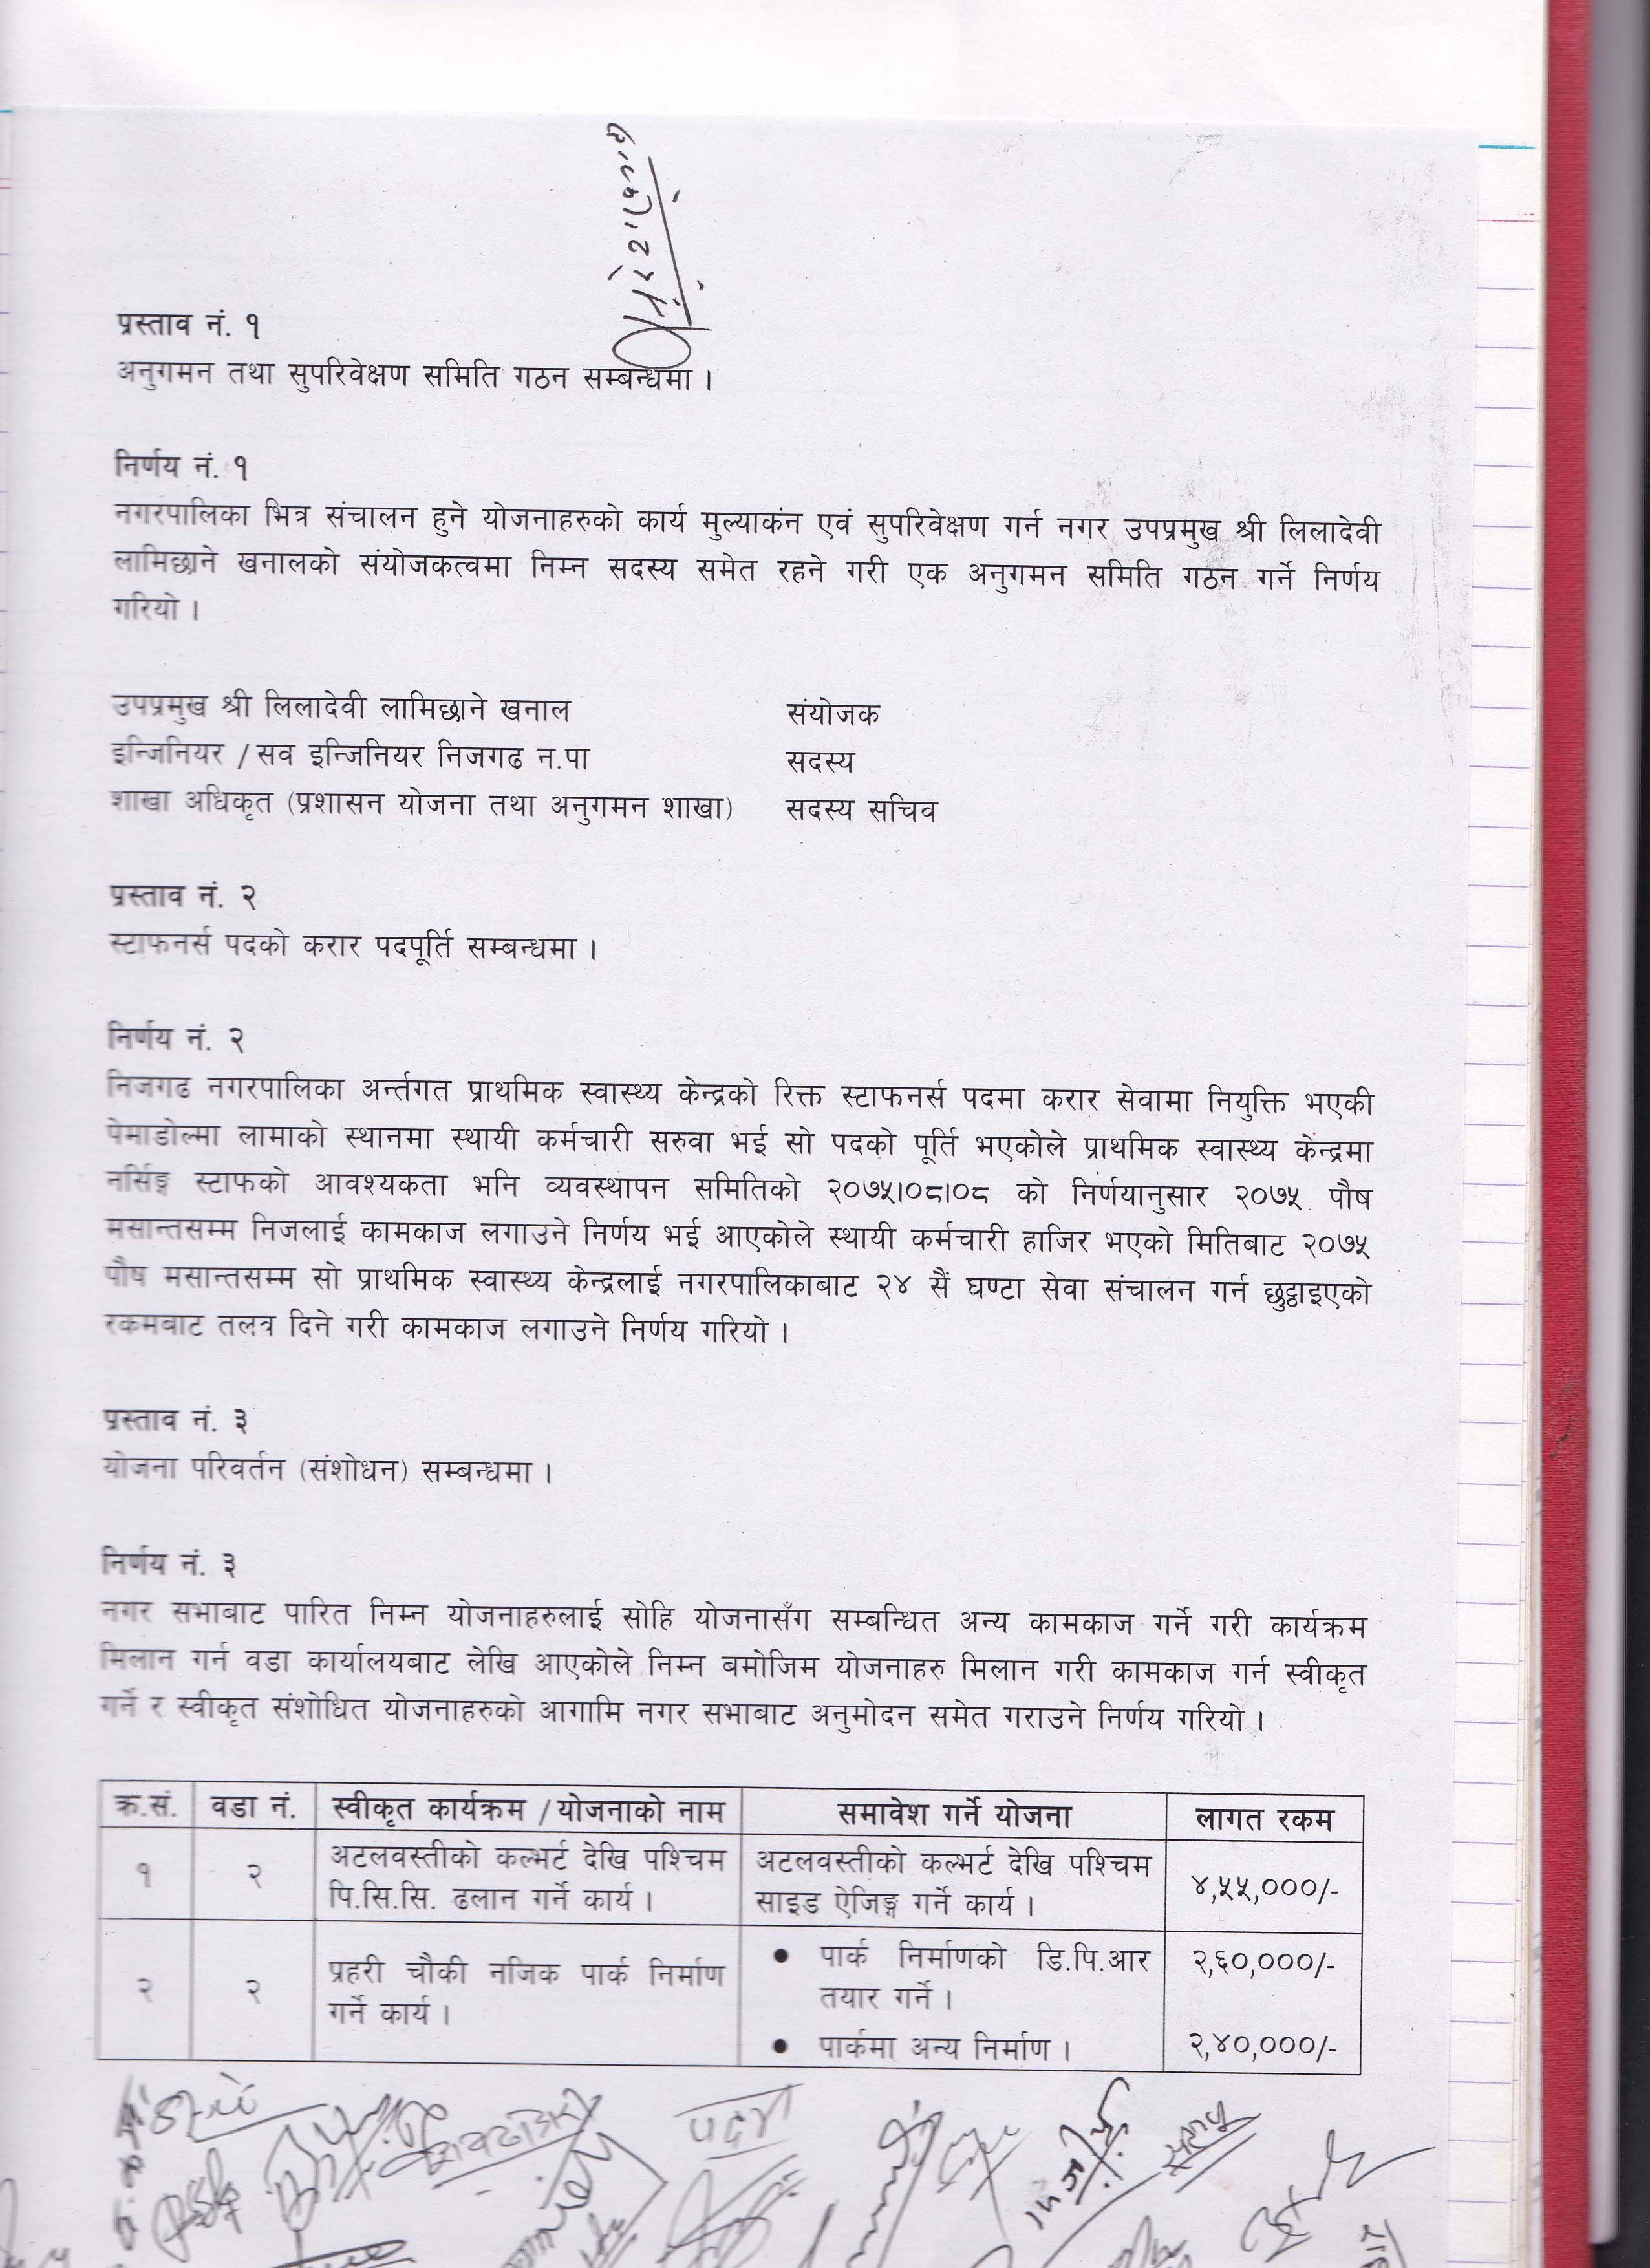 प्रस्ताव नं. १
अनुगमन तथा सुपरिवेक्षण समिति गठन सम्बन्धमा ।
निर्णय नं. १
नगरपालिका भित्र संचालन हुने योजनाहरुको कार्य मुल्याकंन एवं सुपरिवेक्षण गर्न नगर उपप्रमुख श्री लिलादेवी
लामिछाने खनालको संयोजकत्वमा निम्न सदस्य समेत रहने गरी एक अनुगमन समिति गठन गर्ने निर्णय
गरियो ।
उपप्रमुख श्री लिलादेवी लामिछाने खनाल संयोजक
इन्जिनियर /सव इन्जिनियर निजगढ न.पा सदस्य
शाखा अधिकृत (प्रशासन योजना तथा अनुगमन शाखा) सदस्य सचिव
प्रस्ताव नं. २
स्टाफनर्स पदको करार पदपूर्ति सम्बन्धमा ।
निर्णय नं. २
निजगढ नगरपालिका अर्न्तगत प्राथमिक स्वास्थ्य केन्द्रको रिक्त स्टाफनर्स पदमा करार सेवामा नियुक्ति भएकी
पेमाडोल्मा लामाको स्थानमा स्थायी कर्मचारी सरुवा भई सो पदको पूर्ति भएकोले प्राथमिक स्वास्थ्य केन्द्रमा
नर्सिङ्ग स्टाफको आवश्यकता भनि व्यवस्थापन समितिको २०७५।०८।०८ को निर्णयानुसार २०७५ पौष
मसान्तसम्म निजलाई कामकाज लगाउने निर्णय भई आएकोले स्थायी कर्मचारी हाजिर भएको मितिबाट २०७५
पौष मसान्तसम्म सो प्राथमिक स्वास्थ्य केन्द्रलाई नगरपालिकाबाट २४ सैं घण्टा सेवा संचालन गर्न छुट्ठाइएको
रकमबाट तलत्र दिने गरी कामकाज लगाउने निर्णय गरियो ।
प्रस्ताव नं. ३
योजना परिवर्तन (संशोधन) सम्बन्धमा ।
निर्णय नं. ३
नगर सभाबाट पारित निम्न योजनाहरुलाई सोहि योजनासँग सम्बन्धित अन्य कामकाज गर्ने गरी कार्यक्रम
मिलान गर्न वडा कार्यालयबाट लेखि आएकोले निम्न बमोजिम योजनाहरु मिलान गरी कामकाज गर्न स्वीकृत
गर्ने र स्वीकृत संशोधित योजनाहरुको आगामि नगर सभाबाट अनुमोदन समेत गराउने निर्णय गरियो ।
क्र.सं. वडा नं. स्वीकृत कार्यक्रम /योजनाको नाम समावेश गर्ने योजना लागत रकम
१ २ अटलवस्तीको कल्भर्ट देखि पश्चिम अटलवस्तीको कल्भर्ट देखि पश्चिम ४,५५,०००/-
पि.सि.सि. ढलान गर्ने कार्य । साइड ऐजिङ्ग गर्ने कार्य ।
२ २ प्रहरी चौकी नजिक पार्क निर्माण • पार्क निर्माणको डि.पि.आर २,६०,०००/-
गर्ने कार्य । तयार गर्ने ।
• पार्कमा अन्य निर्माण । २,४०,०००/-